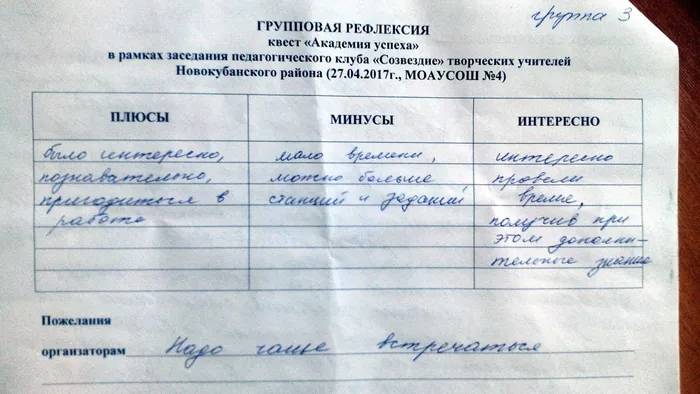 группа 3
ГРУППОВАЯ РЕФЛЕКСИЯ
квест «Академия успеха»
в рамках заседания педагогического клуба «Созвездие» творческих учителей
Новокубанского района (27.04.2017г., МОАУСОШ №4)
ПЛЮСЫ МИНУСЫ ИНТЕРЕСНО
было интересно, мало времени, интересно
познавательно, можно больше провели
пригодиться в станций и заданий время,
работе получив при
этом дополни-
тельное знание
Пожелания
организаторам Надо чаще встречаться